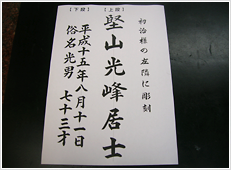 初治様の左隣に彫刻
【上段】
堅山光峰居士
【下段】
平成十五年八月十一日
俗名光男 七十三才